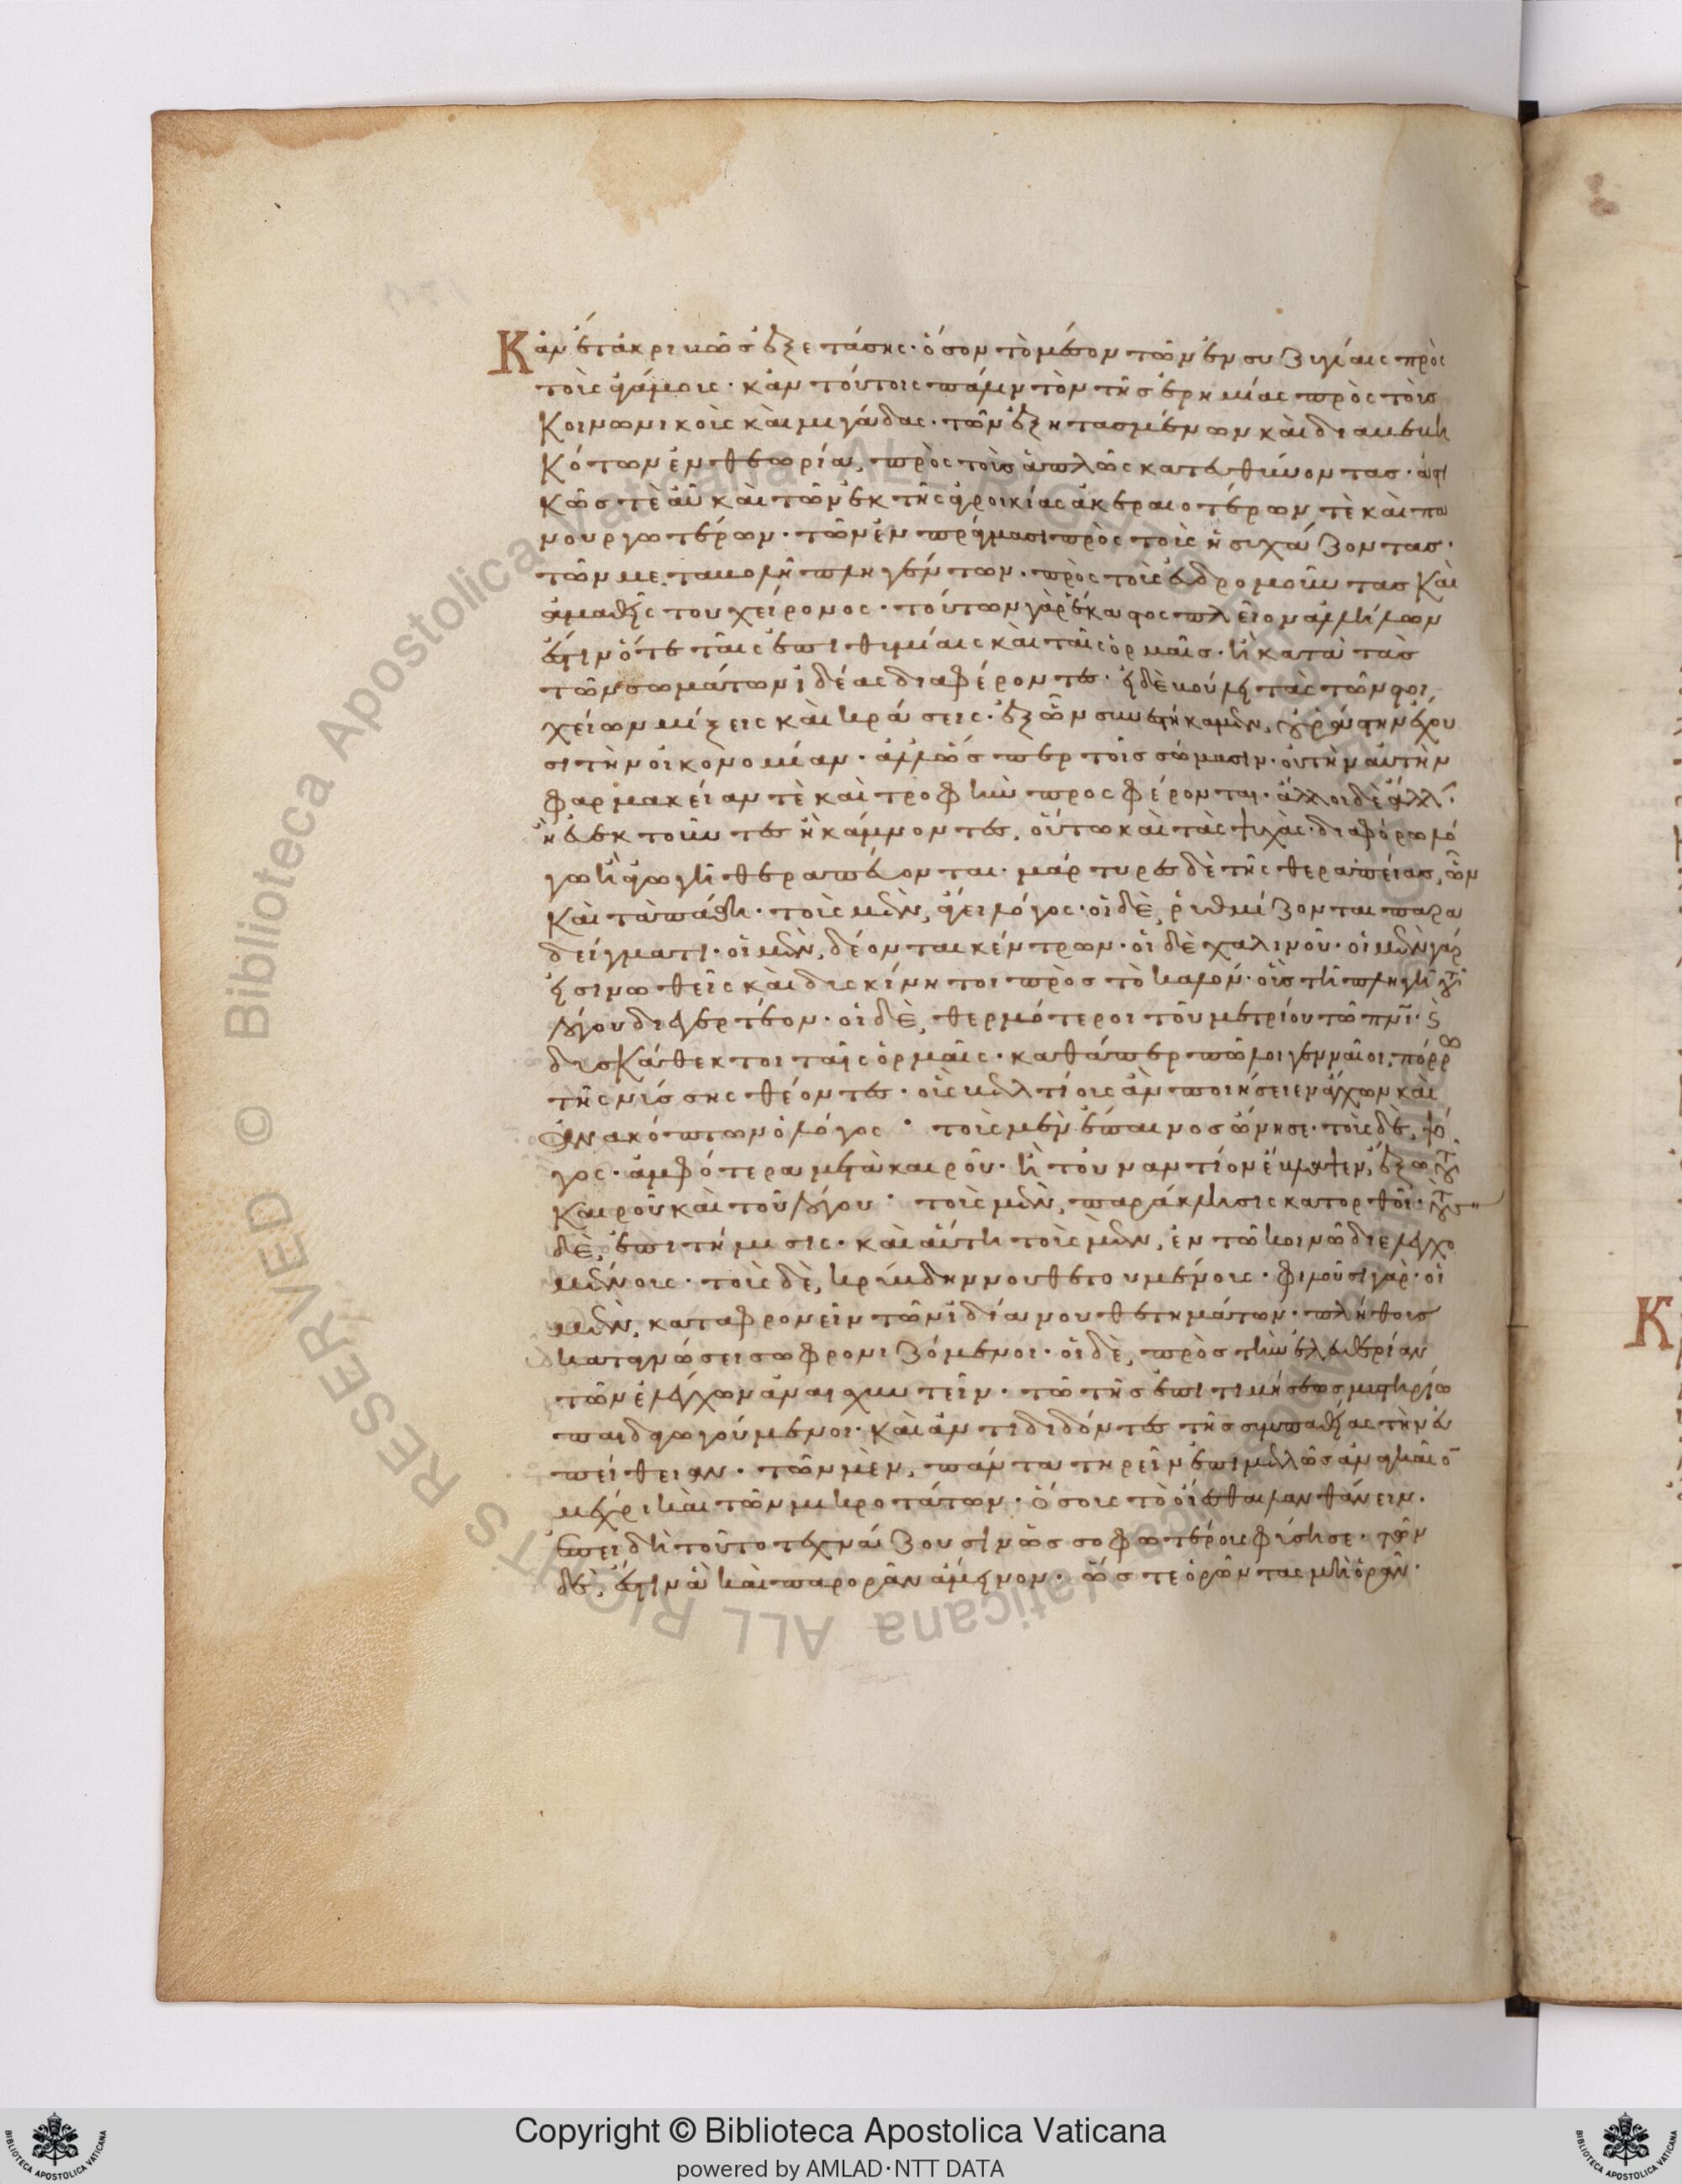 Κἂν ἔτ' ἀκριβῶς ἐξετάσης· ὅσον τὸ μέσον τῶν ἐν συζυγίαις πρὸς
τοὺς ἀγάμους· κἂν τούτοις πάλιν τὸν τῆς ἐρημίας πρὸς τοὺς
κοινωνικοὺς καὶ μιγάδας· τῶν ἐξητασμένων καὶ διαβεβη
κότων ἐν θεωρία, πρὸς τοὺς ἁπλῶς κατευθύνοντας· ἀστι
κῶς τὲ αὖ καὶ τῶν ἐκ τῆς ἀγροικίας ἀκεραιοτέρων τὲ καὶ πα
νουργωτέρων· τῶν ἐν πράγμασι πρὸς τοὺς ἡσυχάζοντας·
τῶν μεταβολῆ πληγέντων, πρὸς τοὺς εὐδρομοῦντας καὶ
ἀμαθεῖς του χείρονος· τούτων γὰρ ἕκαστος πλεῖον ἀλλήλων
ἔστιν ὅτε ταῖς ἐπιθυμίαις καὶ ταῖς ὁρμαῖς· ἢ κατὰ τὰς
τῶν σωμάτων ἰδέας διαφέροντες· εἰ δὲ βούλει τὰς τῶν στοι
χείων μίξεις καὶ κράσεις· ἐξ ὧν συνεστήκαμεν, οὐ ῥάστην ἔχου
σι τὴν οἰκονομίαν· ἀλλ' ὥσπερ τοῖς σώμασιν· οὐ τὴν αὐτὴν
φαρμακείαν τὲ καὶ τροφὴν προσφέρονται· ἄλλοι δὲ ἄλλ·
ἢ εὐεκτοῦντες ἢ κάμνοντες, οὕτω καὶ τὰς ψυχὰς· διαφόρω λό
γω ἢ ἀγωγῆ θεραπεύονται· μάρτυρες δὲ τῆς θεραπείας, ὧν
καὶ τὰ πάθη· τοὺς μὲν, ἄγει λόγος· οἱ δὲ, ῥυθμίζονται παρα
δείγματι· οἱ μὲν, δέονται κέντρων· οἱ δὲ χαλινοῦ· οἱ μὲν γάρ
εἰσι νωθεῖς καὶ δυσκίνητοι πρὸς τὸ καλόν· οὓς τῆ πληγῆ τοῦ
λόγου διεγερτέον· οἱ δὲ, θερμότεροι τοῦ μετρίου τῶ πνῖ· ϛ
δυσκάθεκτοι ταῖς ὁρμαῖς· καθάπερ πῶλοι γενναῖοι, πόρρω
τῆς νύσσης θέοντες· οὓς βελτίους ἂν ποιήσειεν ἄγχων καὶ
ἀνακόπτων ὁ λόγος· τοὺς μὲν ἔπαινος ὤνησε· τοὺς δὲ, ψό
γος· ἀμφότερα μετὰ καιροῦ· ἢ τοὐναντίον ἔβλαψεν, ἔξω τοῦ
καιροῦ καὶ τοῦ λόγου· τοὺς μὲν, παράκλησις κατορθοῖ· τοὺς
δὲ, ἐπιτίμησις· καὶ αὕτη τοὺς μὲν, ἐν τῶ κοινῶ διελεγχο
μένους· τοὺς δὲ, κρύβδην νουθετουμένους· φιλοῦσι γὰρ· οἱ
μὲν, καταφρονεῖν τῶν ἰδία νουθετημάτων· πλήθους
καταγνώσει σωφρονιζόμενοι· οἱ δὲ, πρὸς τὴν ἐλευθερίαν
τῶν ἐλέγχων ἀναισχυντεῖν· τῶ τῆς ἐπιτιμήσεως μυστηρίω
παιδαγωγούμενοι· καὶ ἀντιδιδόντες τῆς συμπαθείας τὴν εὐ
πείθειαν· τῶν μὲν, πάντα τηρεῖν ἐπιμελῶς ἀναγκαῖον
μέχρι καὶ τῶν μικροτάτων· ὅσους τὸ οἴεσθαι λανθάνειν·
ἐπειδὴ τοῦτο τεχνάζουσιν ὡς σοφωτέρους φύσησε· τῶν
δὲ, ἔστιν ἃ καὶ παρορᾶν ἄμεινον· ὥστε ὁρῶντας μὴ ὁρᾶν·
Κ
Copyright © Biblioteca Apostolica Vaticana
powered by AMLAD·NTT DATA